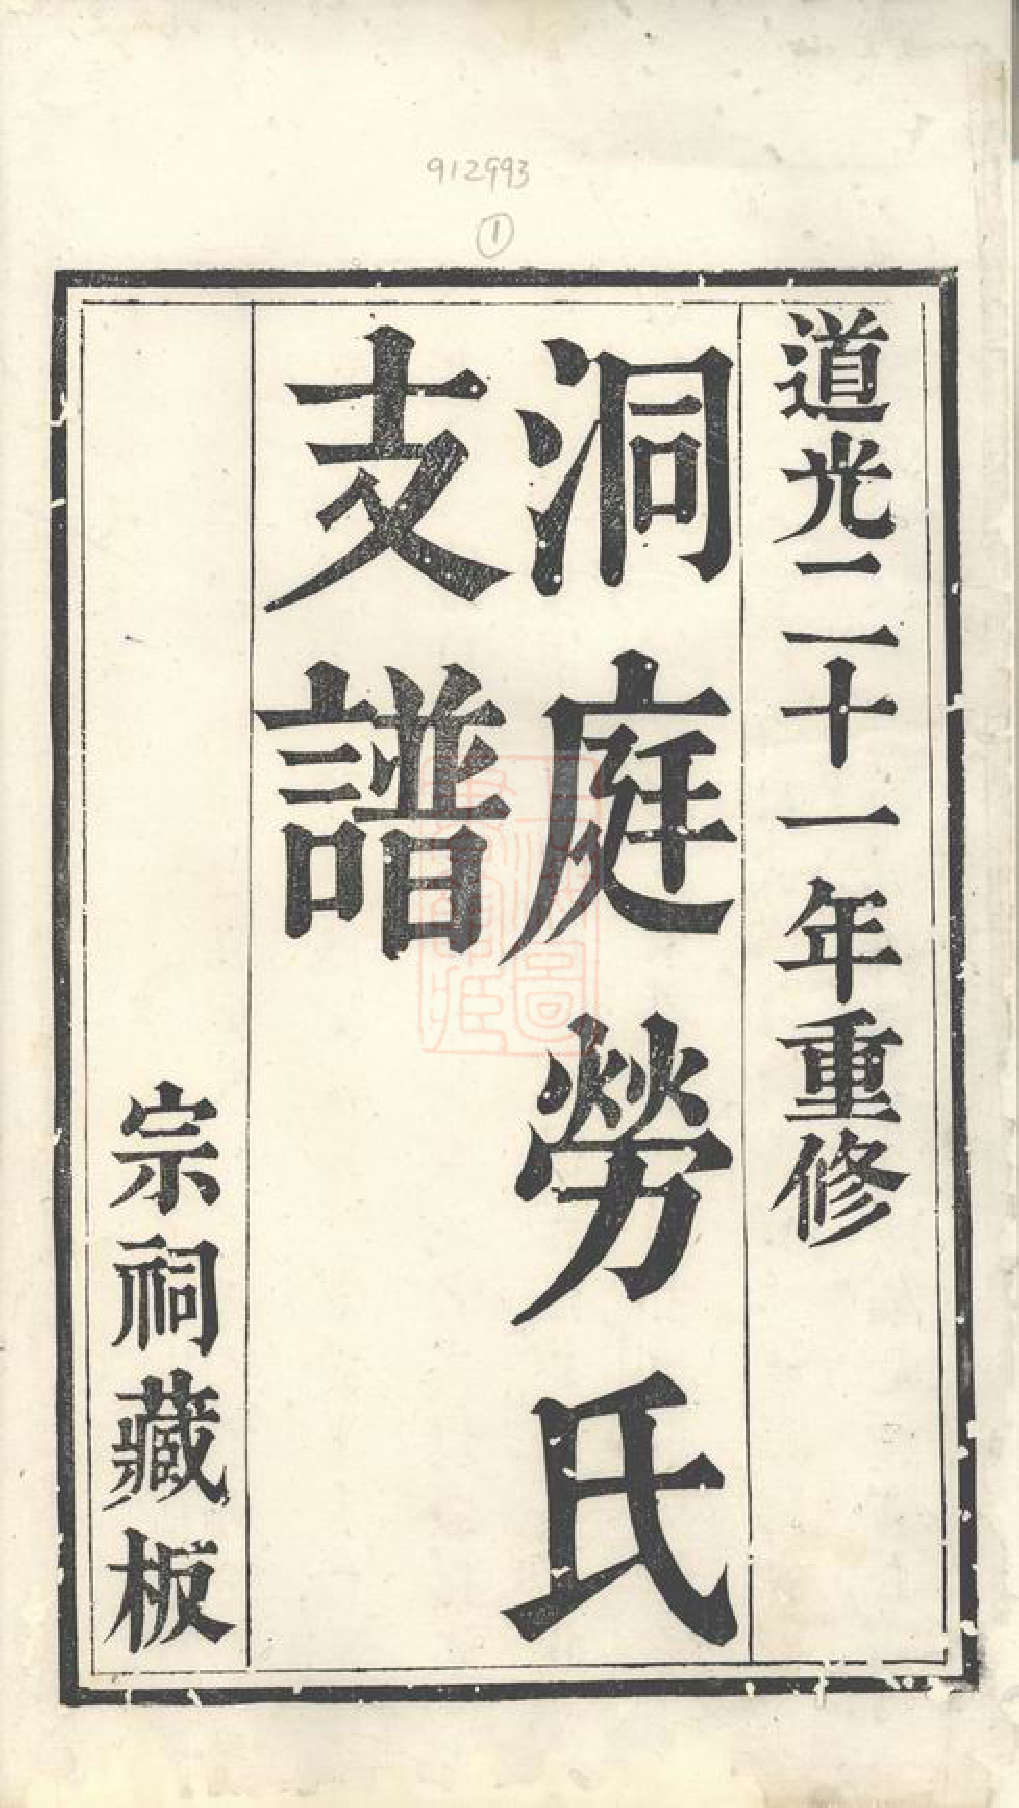 912993
①
道光二十一年重修
洞庭勞氏
支譜
宗祠藏板